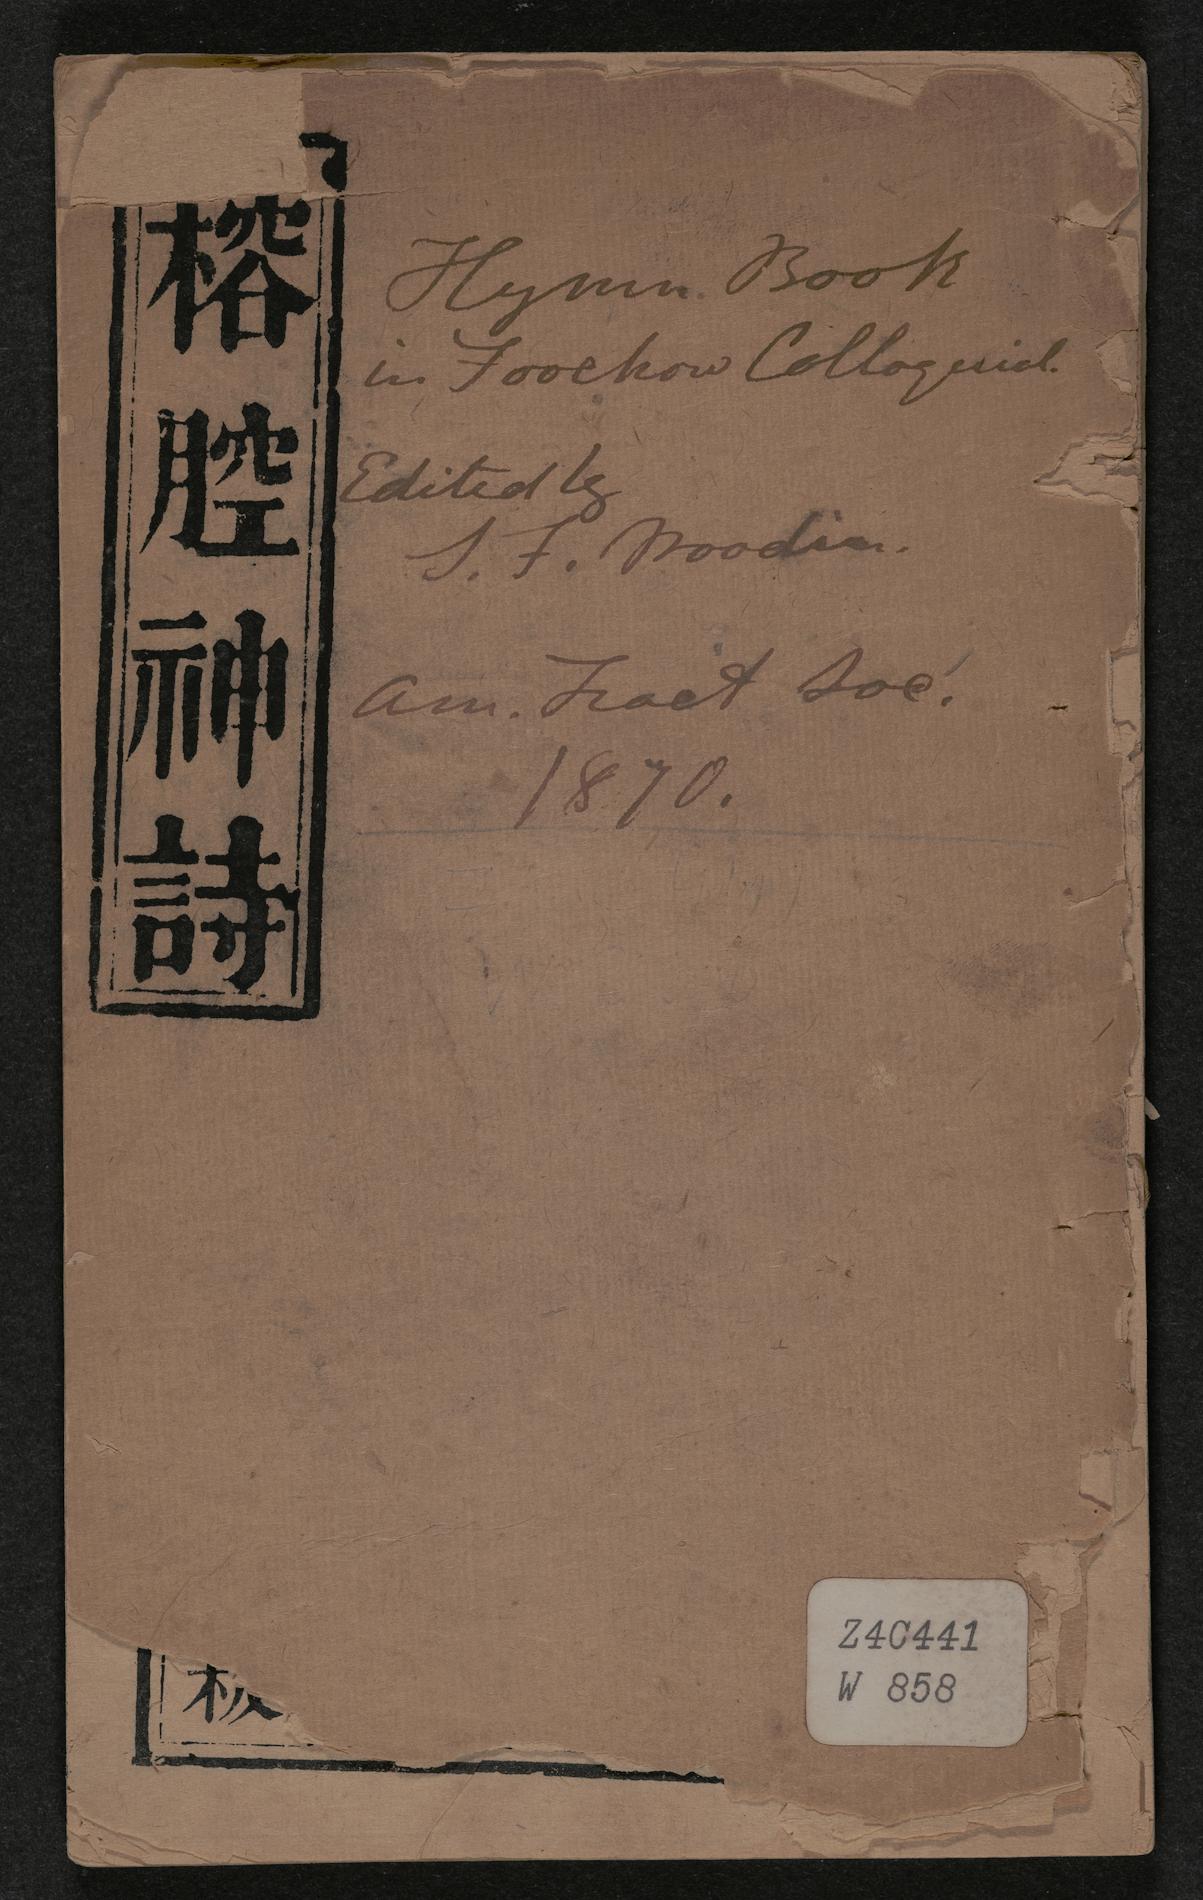 榕腔神詩
Hymn Book
in Foochow Colloquial.
Edited by
S. F. Woodin.
Am. Tract Soc'.
1870.
Z4C441
W 858